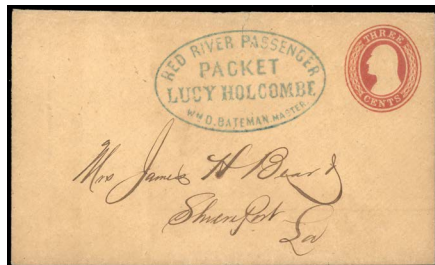 RED RIVER PASSENGER
PACKET
LUCY HOLCOMBE
WM D. BATEMAN MASTER
THREE
CENTS
Mrs James H Beard
ShrevePort
La